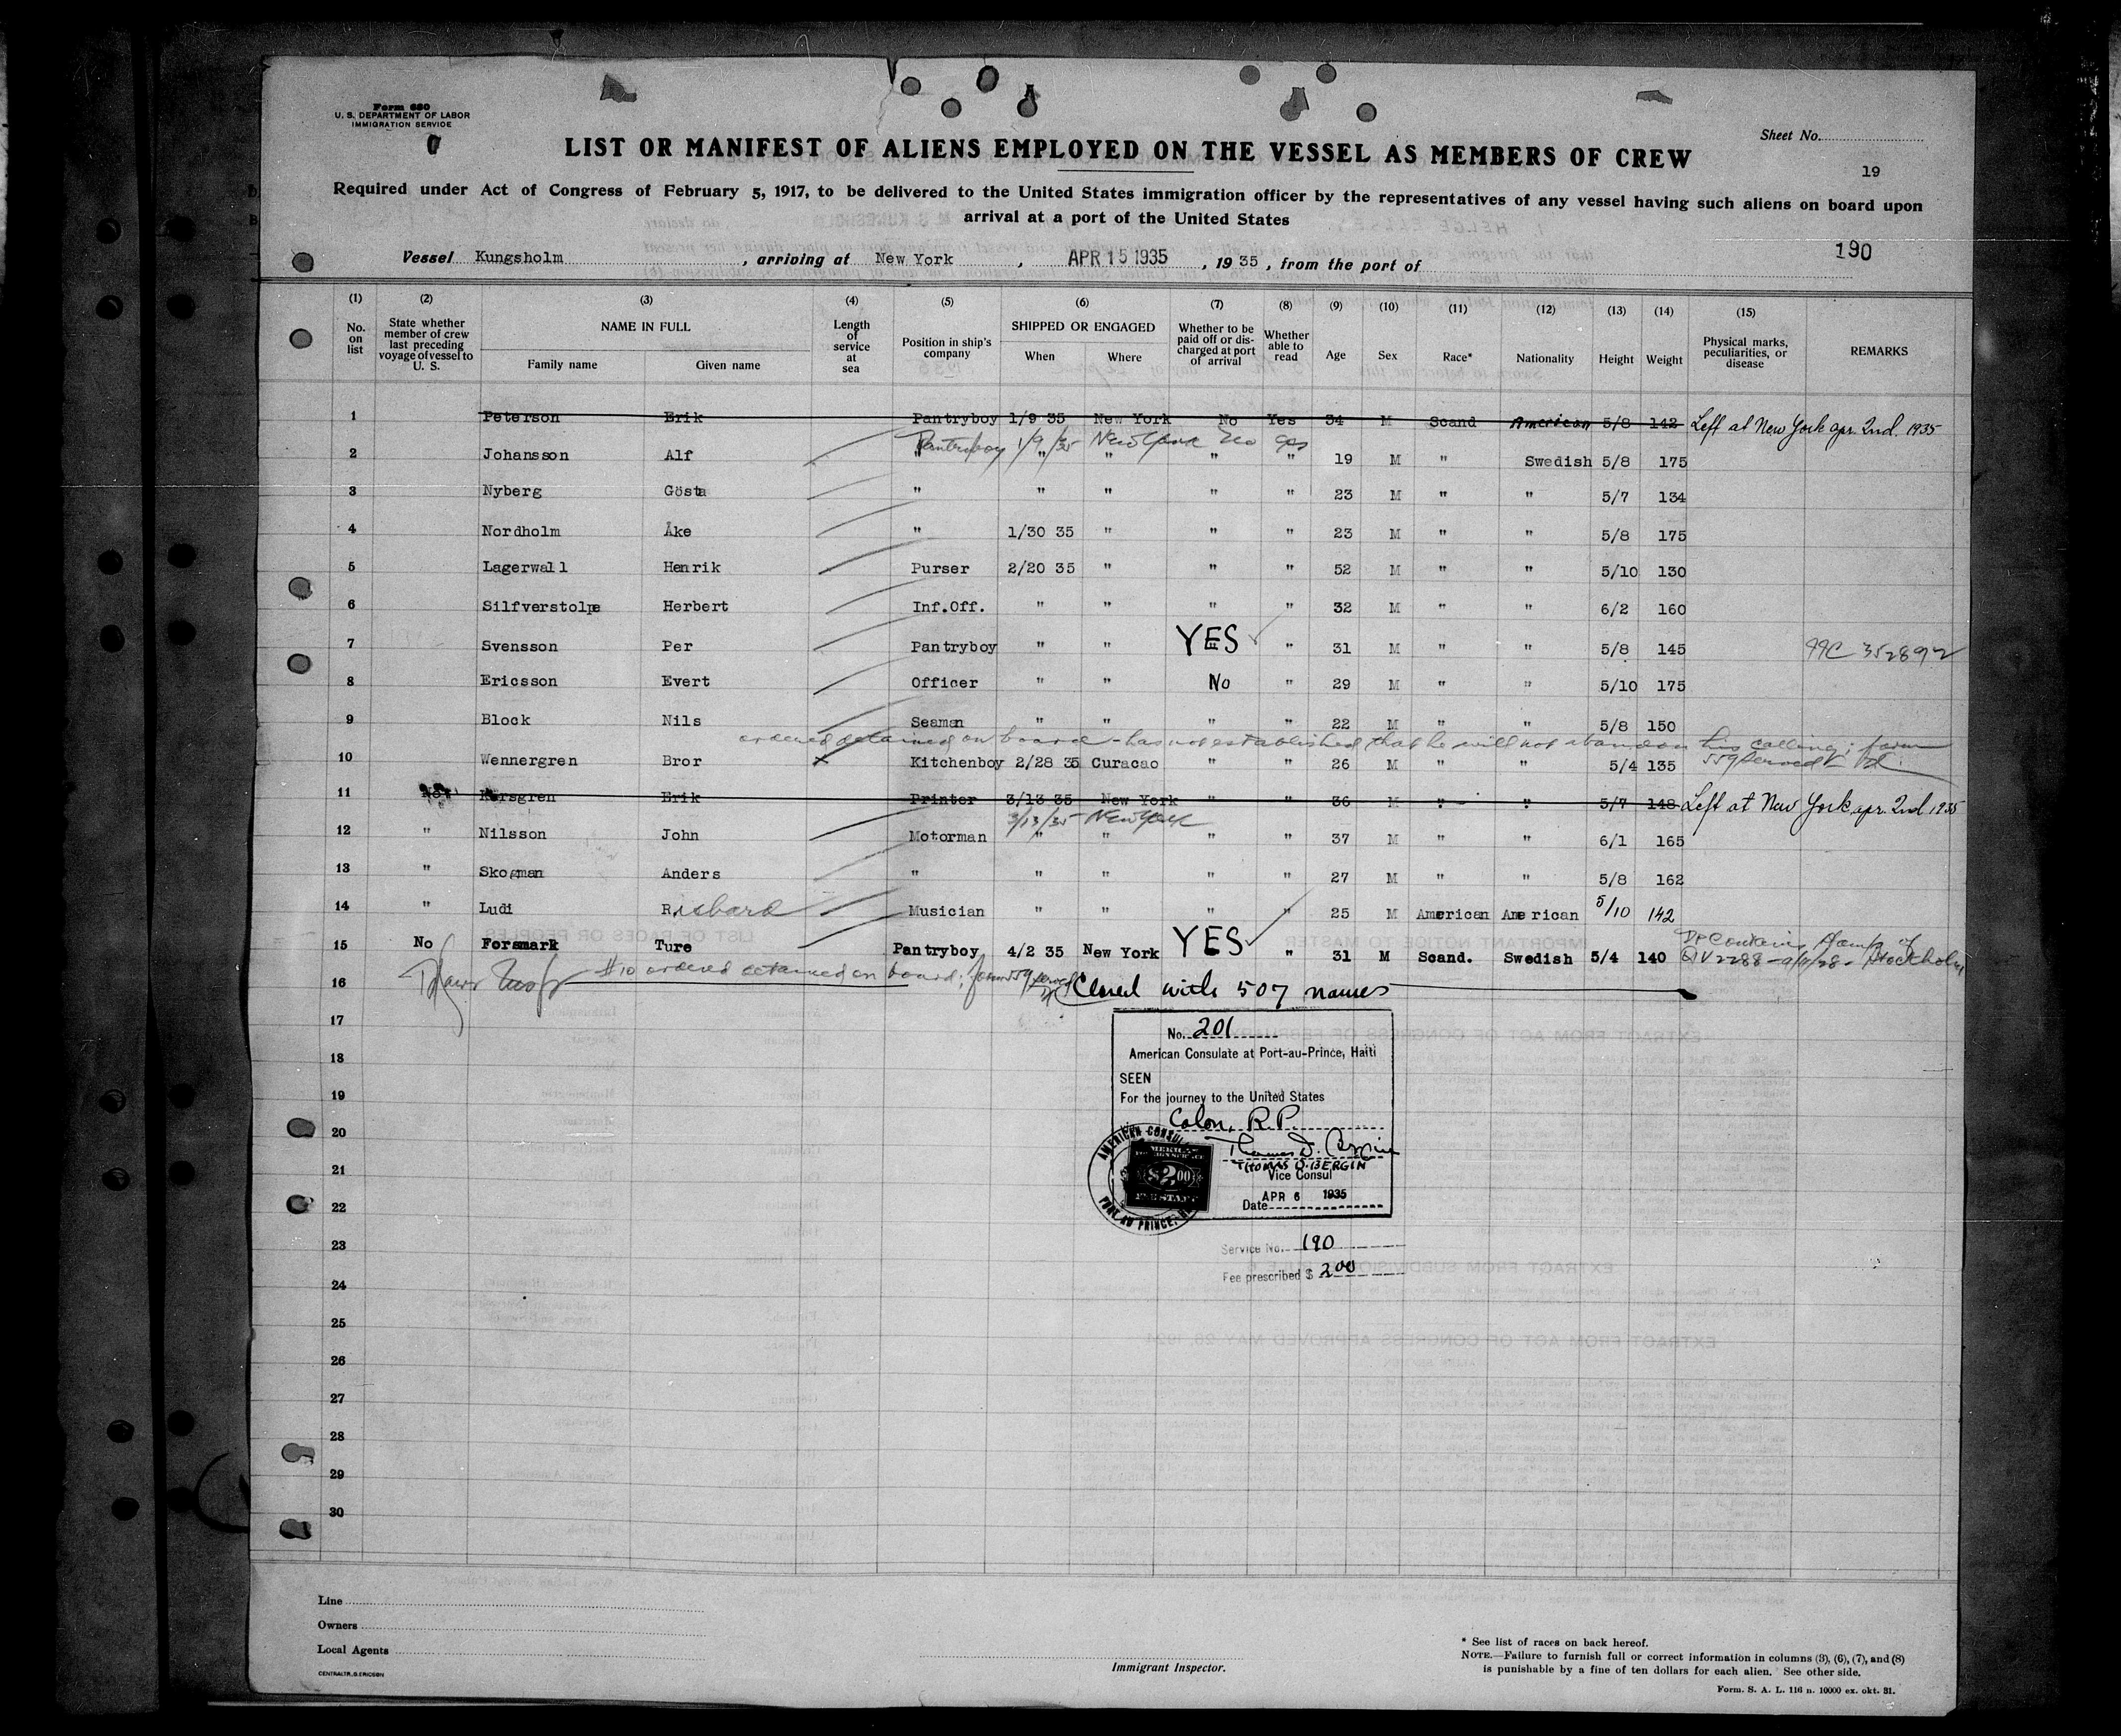 Form 680
U. S. DEPARTMENT OF LABOR
IMMIGRATION SERVICE
Sheet No.
LIST OR MANIFEST OF ALIENS EMPLOYED ON THE VESSEL AS MEMBERS OF CREW
19
Required under Act of Congress of February 5, 1917, to be delivered to the United States immigration officer by the representatives of any vessel having such aliens on board upon
arrival at a port of the United States
190
Vessel Kungsholm, arriving at New York, APR 15 1935, 19 35, from the port of
(1) (2) (3) (4) (5) (6) (7) (8) (9) (10) (11) (12) (13) (14) (15)
No. on list State whether member of crew last preceding voyage of vessel to U. S. NAME IN FULL Length of service at sea Position in ship's company SHIPPED OR ENGAGED Whether to be paid off or discharged at port of arrival Whether able to read Age Sex Race* Nationality Height Weight Physical marks, peculiarities, or disease REMARKS
Family name Given name When Where
1 Peterson Erik Pantryboy 1/9 35 New York No Yes 34 M Scand American 5/8 142 Left at New York apr. 2nd. 1935
Pantryboy 1/9/35 New York No yes
2 Johansson Alf " " " " " 19 M " Swedish 5/8 175
3 Nyberg Gösta " " " " " 23 M " " 5/7 134
4 Nordholm Åke " 1/30 35 " " " 23 M " " 5/8 175
5 Lagerwall Henrik Purser 2/20 35 " " " 52 M " " 5/10 130
6 Silfverstolpe Herbert Inf.Off. " " " " 32 M " " 6/2 160
7 Svensson Per Pantryboy " " YES " 31 M " " 5/8 145 99C 352892
8 Ericsson Evert Officer " " No " 29 M " " 5/10 175
9 Block Nils Seaman " " " " 22 M " " 5/8 150
ordered detained on board - has not established that he will not abandon his calling; form
559 served
10 Wennergren Bror Kitchenboy 2/28 35 Curacao " " 26 M " " 5/4 135
11 Not Korsgren Erik Printer 3/13 35 New York " " 36 M " " 5/7 148 Left at New York, apr. 2nd 1935
3/13/35 New York
12 " Nilsson John Motorman " " " " 37 M " " 6/1 165
13 " Skogman Anders " " " " " 27 M " " 5/8 162
14 " Ludi Richard Musician " " " " 25 M American American 5/10 142
15 No Forsmark Ture Pantryboy 4/2 35 New York YES " 31 M Scand. Swedish 5/4 140 contains stamp of
QIV 2288 - 9/9/28 - Stockholm
#10 ordered detained on board; form 559 served
16 Closed with 507 names
17
No. 201
18 American Consulate at Port-au-Prince, Haiti
SEEN
19 For the journey to the United States
Colon, R.P.
20
Thomas D. Bergin
21 THOMAS D. BERGIN
Vice Consul
22 Date APR 6 1935
AMERICAN CONSUL
AMERICAN FOREIGN SERVICE
$2.00
FEE STAMP
PORT AU PRINCE,
23 Service No. 190
24 Fee prescribed $ 2.00
25
26
27
28
29
30
Line
Owners
Local Agents
CENTRALTR.,G.ERICSON
Immigrant Inspector.
* See list of races on back hereof.
NOTE.—Failure to furnish full or correct information in columns (3), (6), (7), and (8)
is punishable by a fine of ten dollars for each alien. See other side.
Form. S. A. L. 116 n. 10000 ex. okt. 31.